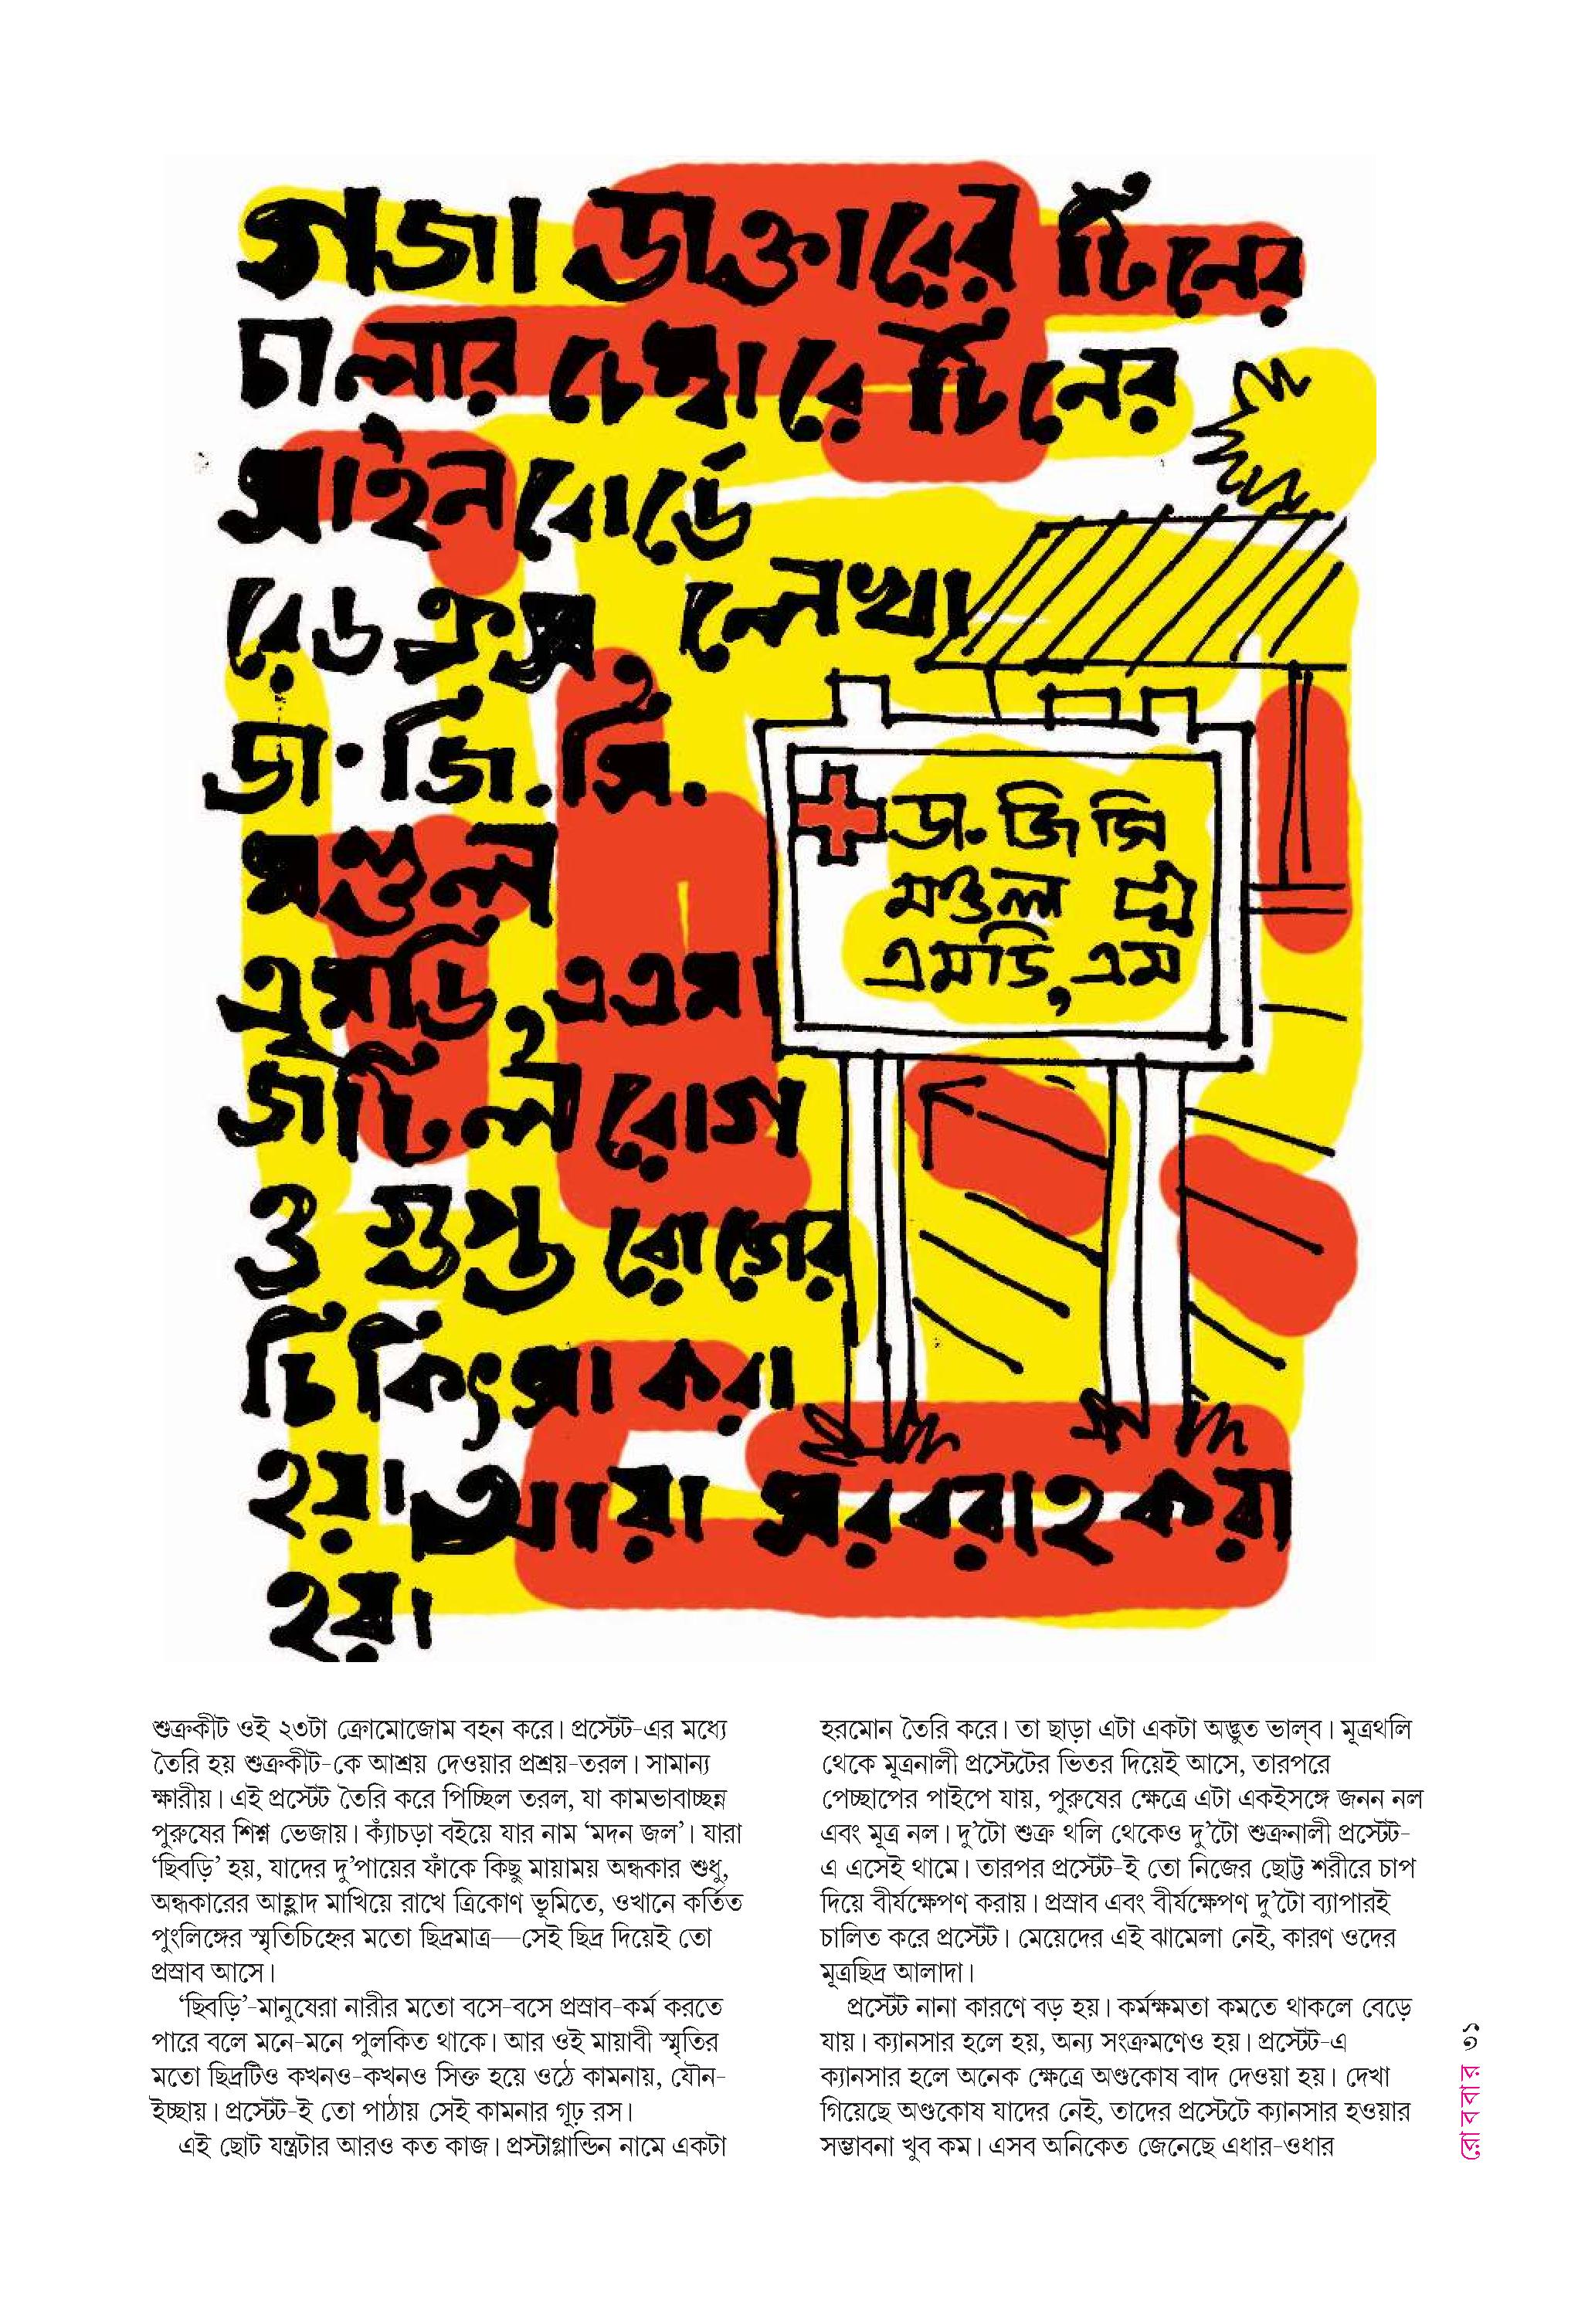 গজা ডাক্তারের টিনের
চালার চেম্বারে টিনের
সাইনবোর্ডে
রেড ক্রস, লেখা
ডা. জি. সি.
মণ্ডল
এমডি, এএম।
জটিল রোগ
ও গুপ্ত রোগের
চিকিৎসা করা
হয়। আয়া সরবরাহ করা
হয়।
ডা. জি সি
মণ্ডল
এমডি, এম
শুক্রকীট ওই ২৩টা ক্রোমোজোম বহন করে। প্রস্টেট-এর মধ্যে
তৈরি হয় শুক্রকীট-কে আশ্রয় দেওয়ার প্রশ্রয়-তরল। সামান্য
ক্ষারীয়। এই প্রস্টেট তৈরি করে পিচ্ছিল তরল, যা কামভাবাচ্ছন্ন
পুরুষের শিশ্ন ভেজায়। ক্যাঁচড়া বইয়ে যার নাম ‘মদন জল’। যারা
‘ছিবড়ি’ হয়, যাদের দু’পায়ের ফাঁকে কিছু মায়াময় অন্ধকার শুধু,
অন্ধকারের আহ্লাদ মাখিয়ে রাখে ত্রিকোণ ভূমিতে, ওখানে কর্তিত
পুংলিঙ্গের স্মৃতিচিহ্নের মতো ছিদ্রমাত্র—সেই ছিদ্র দিয়েই তো
প্রস্রাব আসে।
‘ছিবড়ি’-মানুষেরা নারীর মতো বসে-বসে প্রস্রাব-কর্ম করতে
পারে বলে মনে-মনে পুলকিত থাকে। আর ওই মায়াবী স্মৃতির
মতো ছিদ্রটিও কখনও-কখনও সিক্ত হয়ে ওঠে কামনায়, যৌন-
ইচ্ছায়। প্রস্টেট-ই তো পাঠায় সেই কামনার গূঢ় রস।
এই ছোট যন্ত্রটার আরও কত কাজ। প্রস্টাগ্লান্ডিন নামে একটা
হরমোন তৈরি করে। তা ছাড়া এটা একটা অদ্ভুত ভাল্‌ব। মূত্রথলি
থেকে মূত্রনালী প্রস্টেটের ভিতর দিয়েই আসে, তারপরে
পেচ্ছাপের পাইপে যায়, পুরুষের ক্ষেত্রে এটা একইসঙ্গে জনন নল
এবং মূত্র নল। দু’টো শুক্র থলি থেকেও দু’টো শুক্রনালী প্রস্টেট-
এ এসেই থামে। তারপর প্রস্টেট-ই তো নিজের ছোট্ট শরীরে চাপ
দিয়ে বীর্যক্ষেপণ করায়। প্রস্রাব এবং বীর্যক্ষেপণ দু’টো ব্যাপারই
চালিত করে প্রস্টেট। মেয়েদের এই ঝামেলা নেই, কারণ ওদের
মূত্রছিদ্র আলাদা।
প্রস্টেট নানা কারণে বড় হয়। কর্মক্ষমতা কমতে থাকলে বেড়ে
যায়। ক্যানসার হলে হয়, অন্য সংক্রমণেও হয়। প্রস্টেট-এ
ক্যানসার হলে অনেক ক্ষেত্রে অণ্ডকোষ বাদ দেওয়া হয়। দেখা
গিয়েছে অণ্ডকোষ যাদের নেই, তাদের প্রস্টেটে ক্যানসার হওয়ার
সম্ভাবনা খুব কম। এসব অনিকেত জেনেছে এধার-ওধার
রোববার ৩১